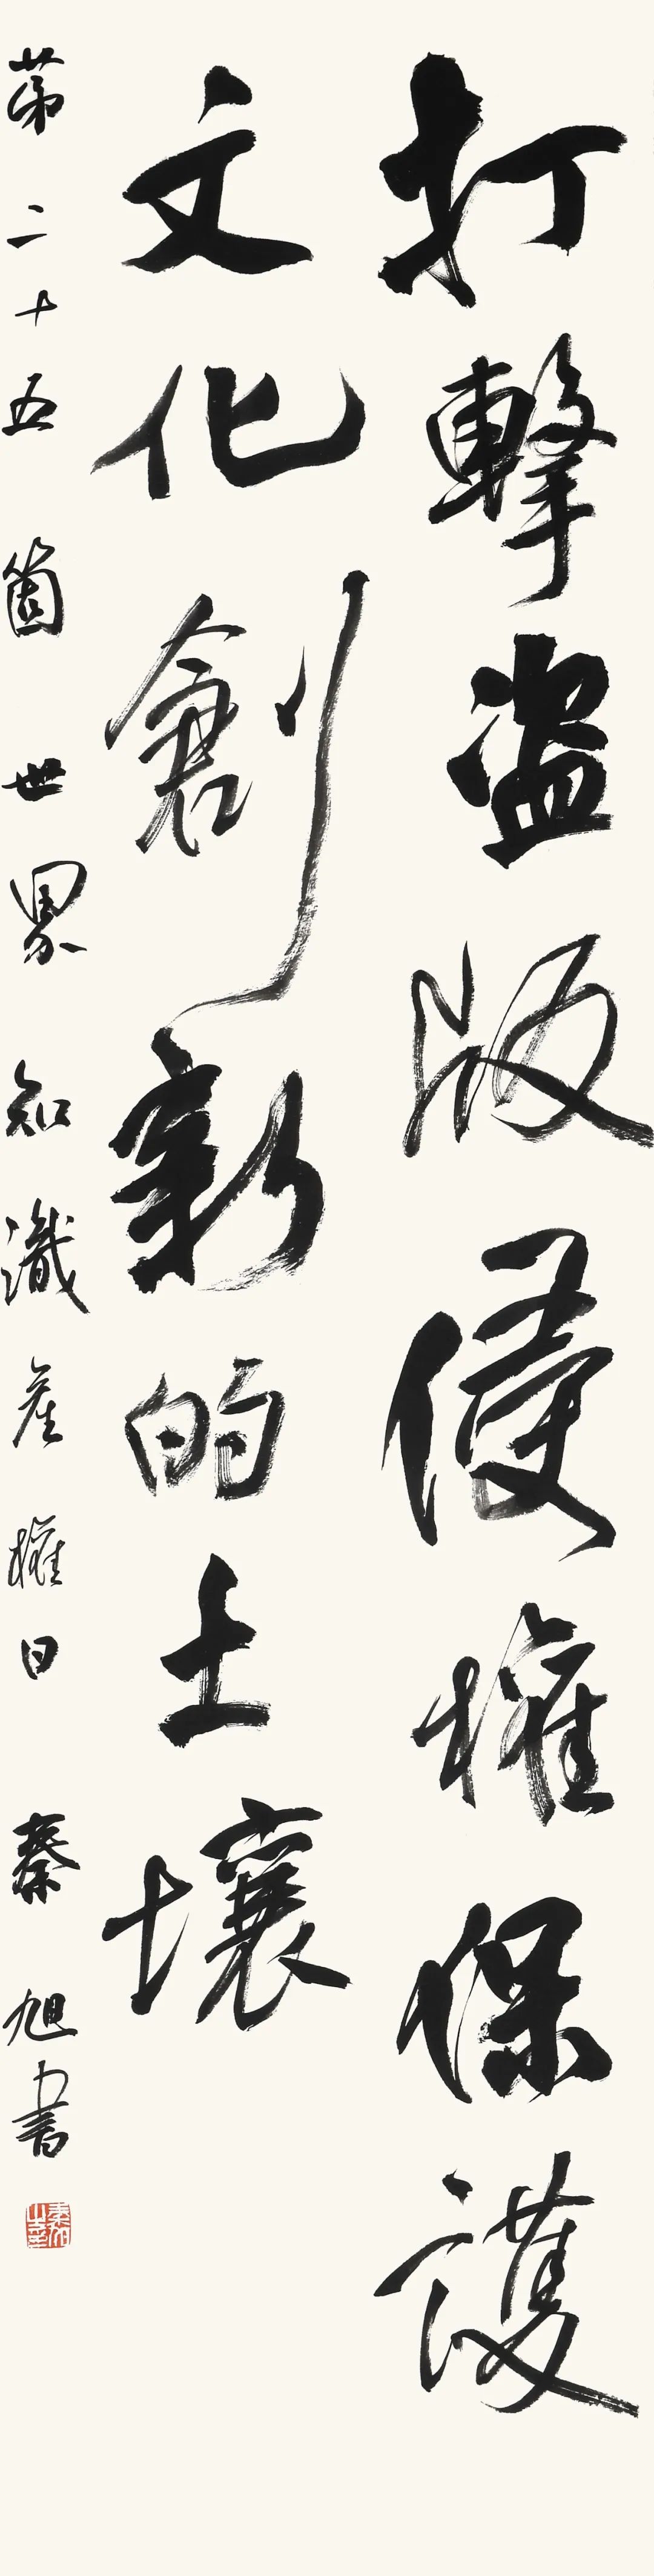 打擊盜版侵權保護
文化創新的土壤
第二十五箇世界知識產權日 秦旭書